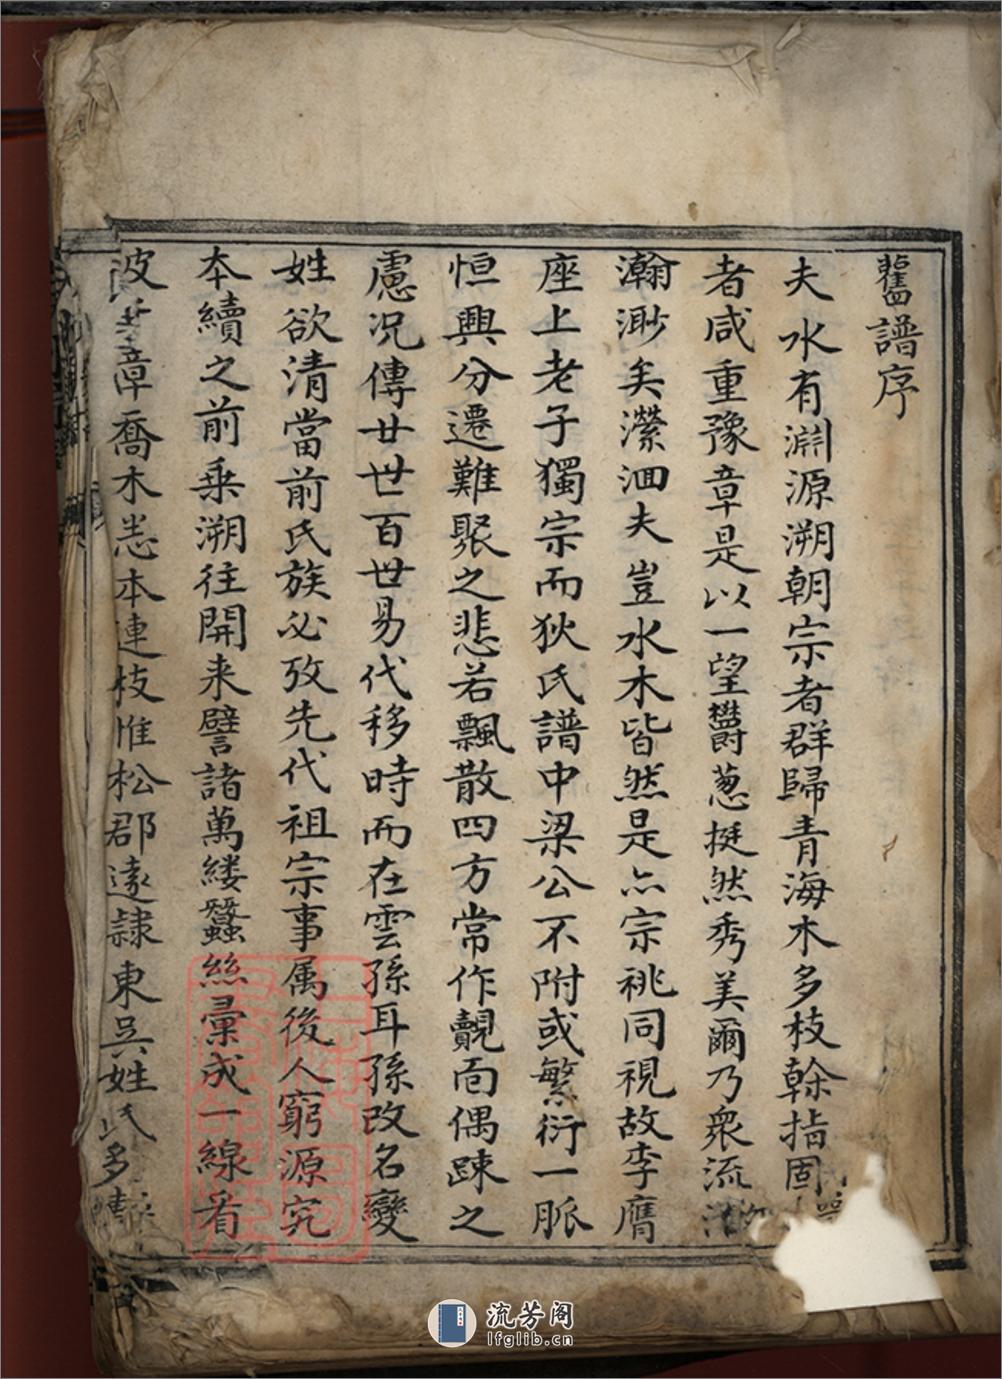 舊譜序
夫水有淵源溯朝宗者群歸青海木多枝幹指固
者咸重豫章是以一望欝葱挺然秀美爾乃衆流
瀚渺矣瀠洄夫豈水木皆然是亦宗祧同視故李膺
座上老子獨宗而狄氏譜中梁公不附或繁衍一脈
恒興分遷難聚之悲若飄散四方常作覿面偶踈之
慮况傳廿世百世易代移時而在雲孫耳孫改名變
姓欲清當前氏族必攷先代祖宗事属後人窮源究
本續之前乗溯往開来譬諸萬縷蠶絲彙成一線肴
波章喬木恙本連枝惟松郡遠隷東吳姓氏多
流芳阁
lfglib.cn